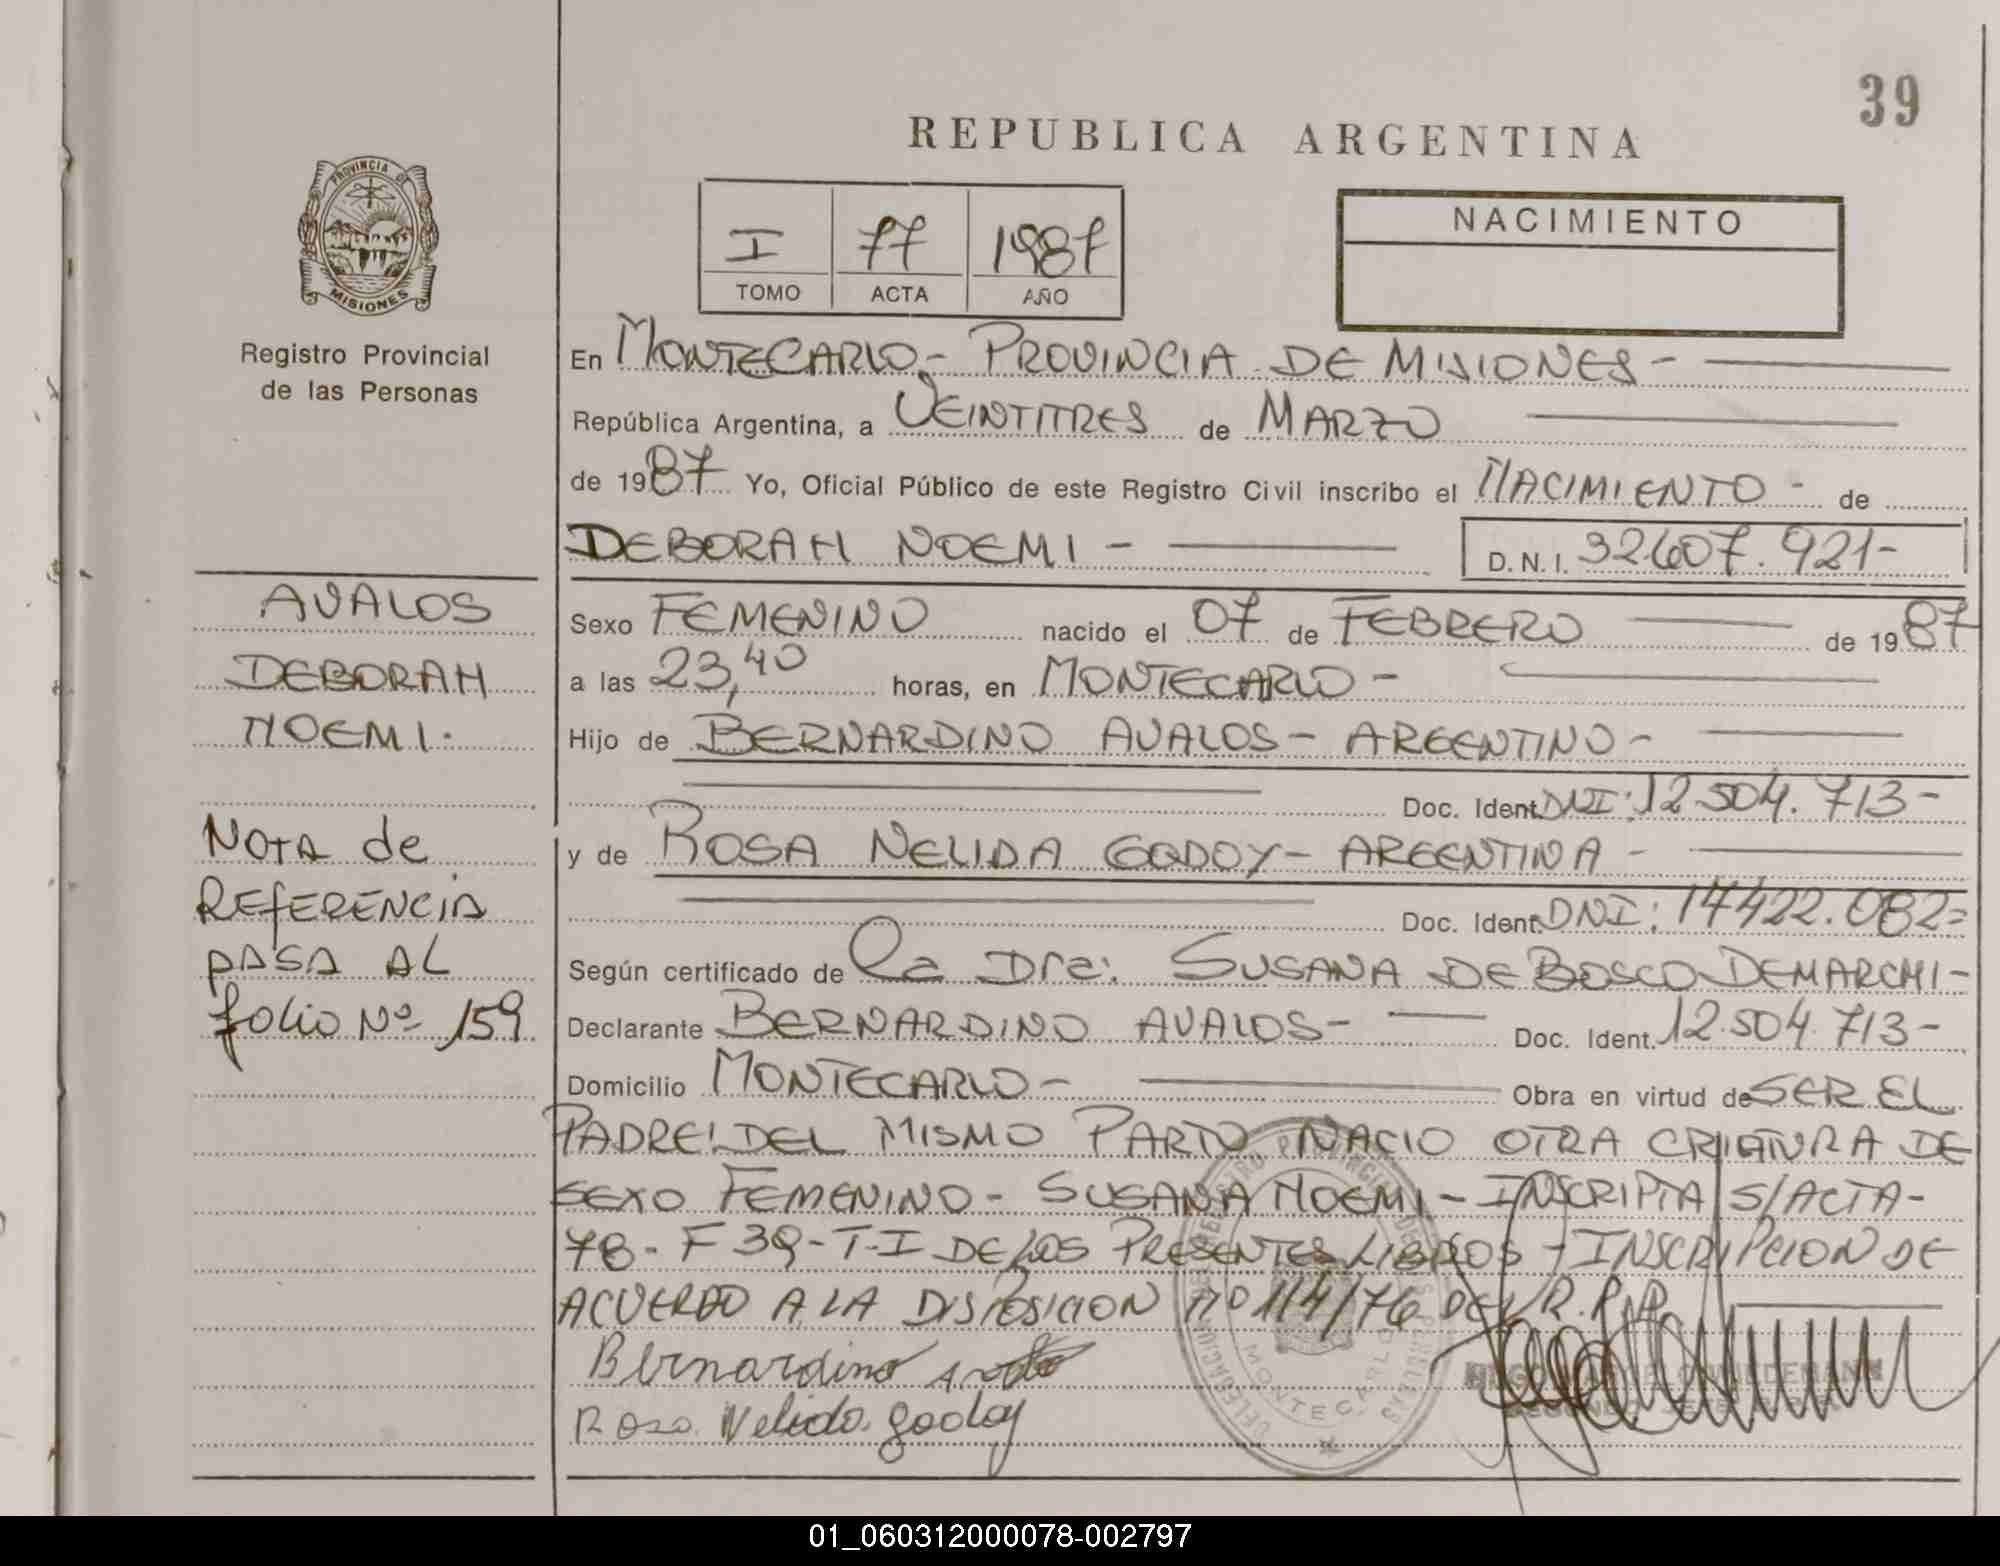 39
REPUBLICA ARGENTINA
PROVINCIA DE
MISIONES
Registro Provincial
de las Personas
I 77 1987
TOMO ACTA AÑO
NACIMIENTO
En MONTECARLO - PROVINCIA DE MISIONES -
República Argentina, a VEINTITRES de MARZO
de 1987 Yo, Oficial Público de este Registro Civil inscribo el NACIMIENTO - de
DEBORAH NOEMI - D.N.I. 32607.921-
AVALOS
DEBORAH
NOEMI.
Sexo FEMENINO nacido el 07 de FEBRERO de 1987
a las 23,40 horas, en MONTECARLO -
Hijo de BERNARDINO AVALOS - ARGENTINO -
Doc. Ident. DNI: 12.504.713-
y de ROSA NELIDA GODOY - ARGENTINA -
Doc. Ident. DNI: 14422.082=
NOTA de
REFERENCIA
PASA AL
folio Nº 159
Según certificado de La Dra: SUSANA DE BOSCO DEMARCHI -
Declarante BERNARDINO AVALOS - Doc. Ident. 12.504.713-
Domicilio MONTECARLO - Obra en virtud de SER EL
PADRE! DEL MISMO PARTO NACIO OTRA CRIATURA DE
SEXO FEMENINO - SUSANA NOEMI - INSCRIPTA S/ACTA -
78 - F 39 - T - I DE LOS PRESENTES LIBROS - INSCRIPCION DE
ACUERDO A LA DISPOSICION NO 114/76 DEL R.P.P.
Bernardino
Rosa Nelida godoy
MONTECARLO
01_060312000078-002797